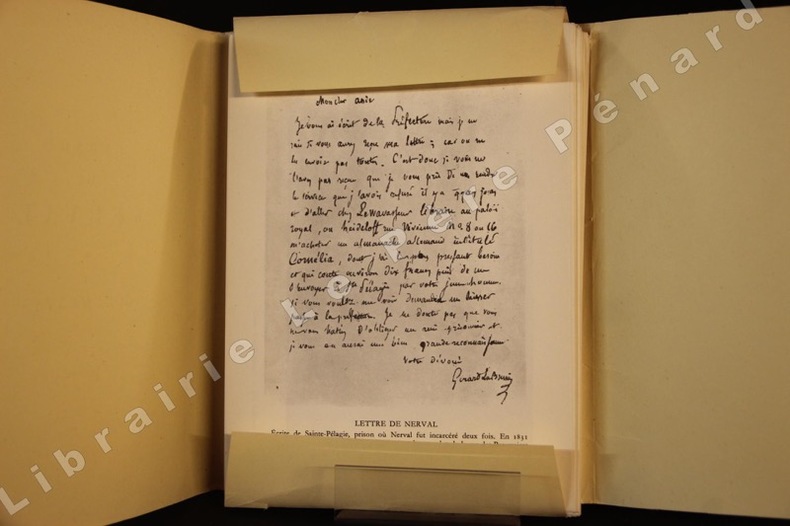 Mon cher ami
Je vous ai écrit de la Préfecture mais je ne
sais si vous avez reçu ma lettre ; car on ne
les envoie pas toutes. C'est donc si vous ne
l'avez pas reçue que je vous prie de me rendre
le service que j'avais refusé il y a
et d'aller chez Levavasseur libraire au palais
royal, ou heideloff rue Vivienne No 8 ou 16
m'acheter un almanach allemand intitulé
Cornélia, dont j'ai le plus pressant besoin
et qui coûte environ dix francs puis de me
l'envoyer à Ste Pélagie par votre jeune homme.
si vous voulez me voir demandez un laisser
passer à la préfecture. Je ne doute pas que vous
ne vous hâtiez d'obliger un ami prisonnier et
je vous en aurai une bien grande reconnaissance
votre dévoué
Gérard Labrunie
LETTRE DE NERVAL
Écrite de Sainte-Pélagie, prison où Nerval fut incarcéré deux fois. En 1831
Librairie Le Père Pénard